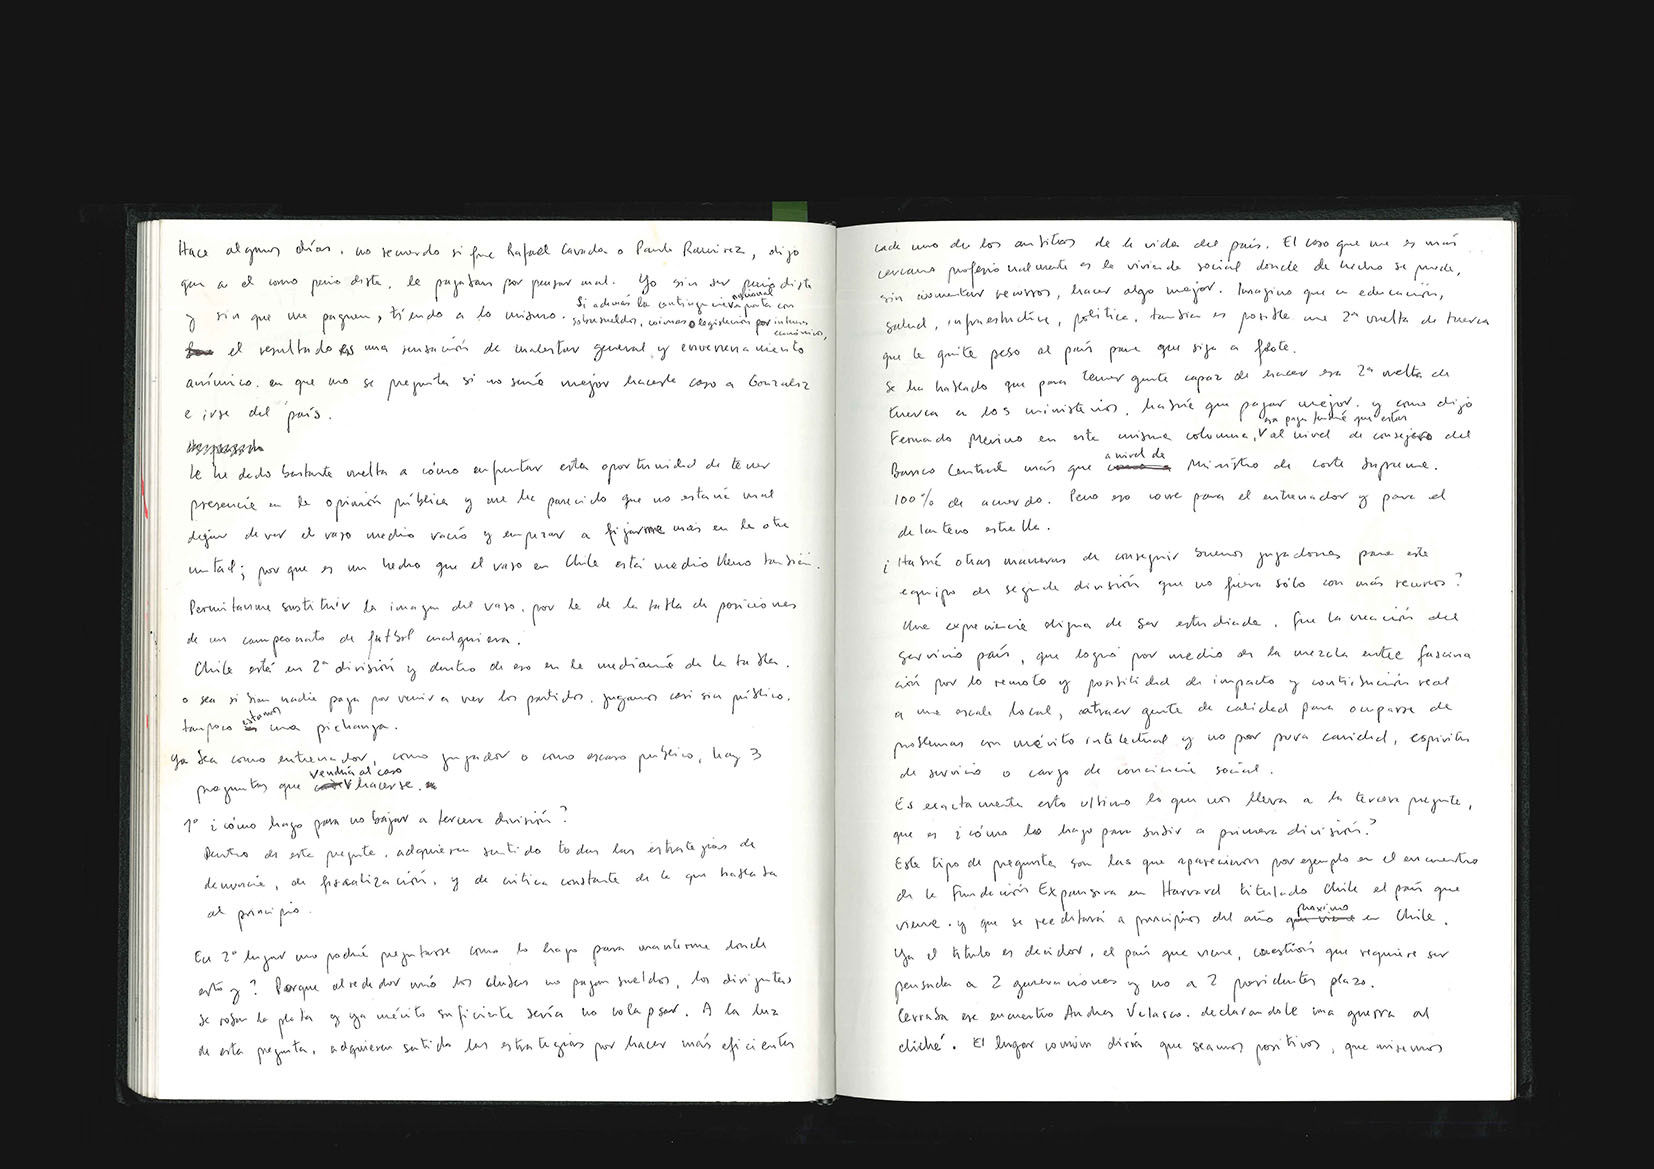 Hace algunos días, no recuerdo si fue Rafael Cavada o Paulo Ramirez, dijo
que a el como periodista, le pagaban por pensar mal. Yo sin ser periodista
y sin que me paguen, tiendo a lo mismo. Si además la contingencia nacional parta con
sobresueldos, coimas o legislación por intereses
económicos,
el resultado es una sensación de malestar general y envenenamiento
anímico. en que uno se pregunta si no sería mejor hacerle caso a Gonzalez
e irse del país.
Le he dado bastante vuelta a cómo enfrentar esta oportunidad de tener
presencia en la opinión pública y me ha parecido que no estaría mal
dejar de ver el vaso medio vacío y empezar a fijarme más en la otra
mitad; porque es un hecho que el vaso en Chile está medio lleno también.
Permitanme sustituir la imagen del vaso, por la de la tabla de posiciones
de un campeonato de futbol cualquiera.
Chile está en 2ª división y dentro de eso en la medianía de la tabla.
o sea si bien nadie paga por venir a ver los partidos, jugamos casi sin público,
tampoco estamos es una pichanga.
Ya sea como entrenador, como jugador o como escaso publico, hay 3
preguntas que vendría al caso hacerse.
1º ¿cómo hago para no bajar a tercera división?
Dentro de esta pregunta, adquieren sentido todas las estrategias de
denuncia, de fiscalización, y de critica constante de la que hablaba
al principio.
En 2º lugar uno podría preguntarse como lo hago para mantenerme donde
estoy? Porque alrededor mío los clubes no pagan sueldos, los dirigentes
se roban la plata y ya mérito suficiente sería no colapsar. A la luz
de esta pregunta, adquieren sentido las estrategias por hacer más eficientes
cada uno de los ambitos de la vida del país. El caso que me es más
cercano profesionalmente es la vivienda social donde de hecho se puede,
sin aumentar recursos, hacer algo mejor. Imagino que en educación,
salud, infraestructura, política, tambien es posible una 2ª vuelta de tuerca
que le quite peso al país para que siga a flote.
Se ha hablado que para tener gente capaz de hacer esa 2ª vuelta de
tuerca a los ministerios, habría que pagar mejor. y como dijo
Fernando Merino en esta misma columna, esa paga tendría que estar al nivel de consejero del
Banco Central más que a nivel de Ministro de Corte Suprema.
100% de acuerdo. Pero eso corre para el entrenador y para el
delantero estrella.
¿Habrá otras maneras de conseguir buenos jugadores para este
equipo de segunda división que no fuera sólo con más recursos?
Una experiencia digna de ser estudiada, fue la creación del
servicio país, que logró por medio de la mezcla entre fascina
ción por lo remoto y posibilidad de impacto y contribución real
a una escala local, atraer gente de calidad para ocuparse de
problemas con mérito intelectual y no por pura caridad, espiritu
de servicio o cargo de conciencia social.
Es exactamente esto ultimo lo que nos lleva a la tercera pregunta,
que es ¿cómo lo hago para subir a primera división?
Este tipo de pregunta son las que aparecieron por ejemplo en el encuentro
de la Fundación Expansiva en Harvard titulado Chile el país que
viene. y que se reeditará a principios del año próximo que viene en Chile.
Ya el titulo es decidor, el país que viene, cuestión que requiere ser
pensada a 2 generaciones y no a 2 presidentes plazo.
Cerraba ese encuentro Andres Velasco, declarandole una guerra al
cliché. El lugar común diría que seamos positivos, que miremos